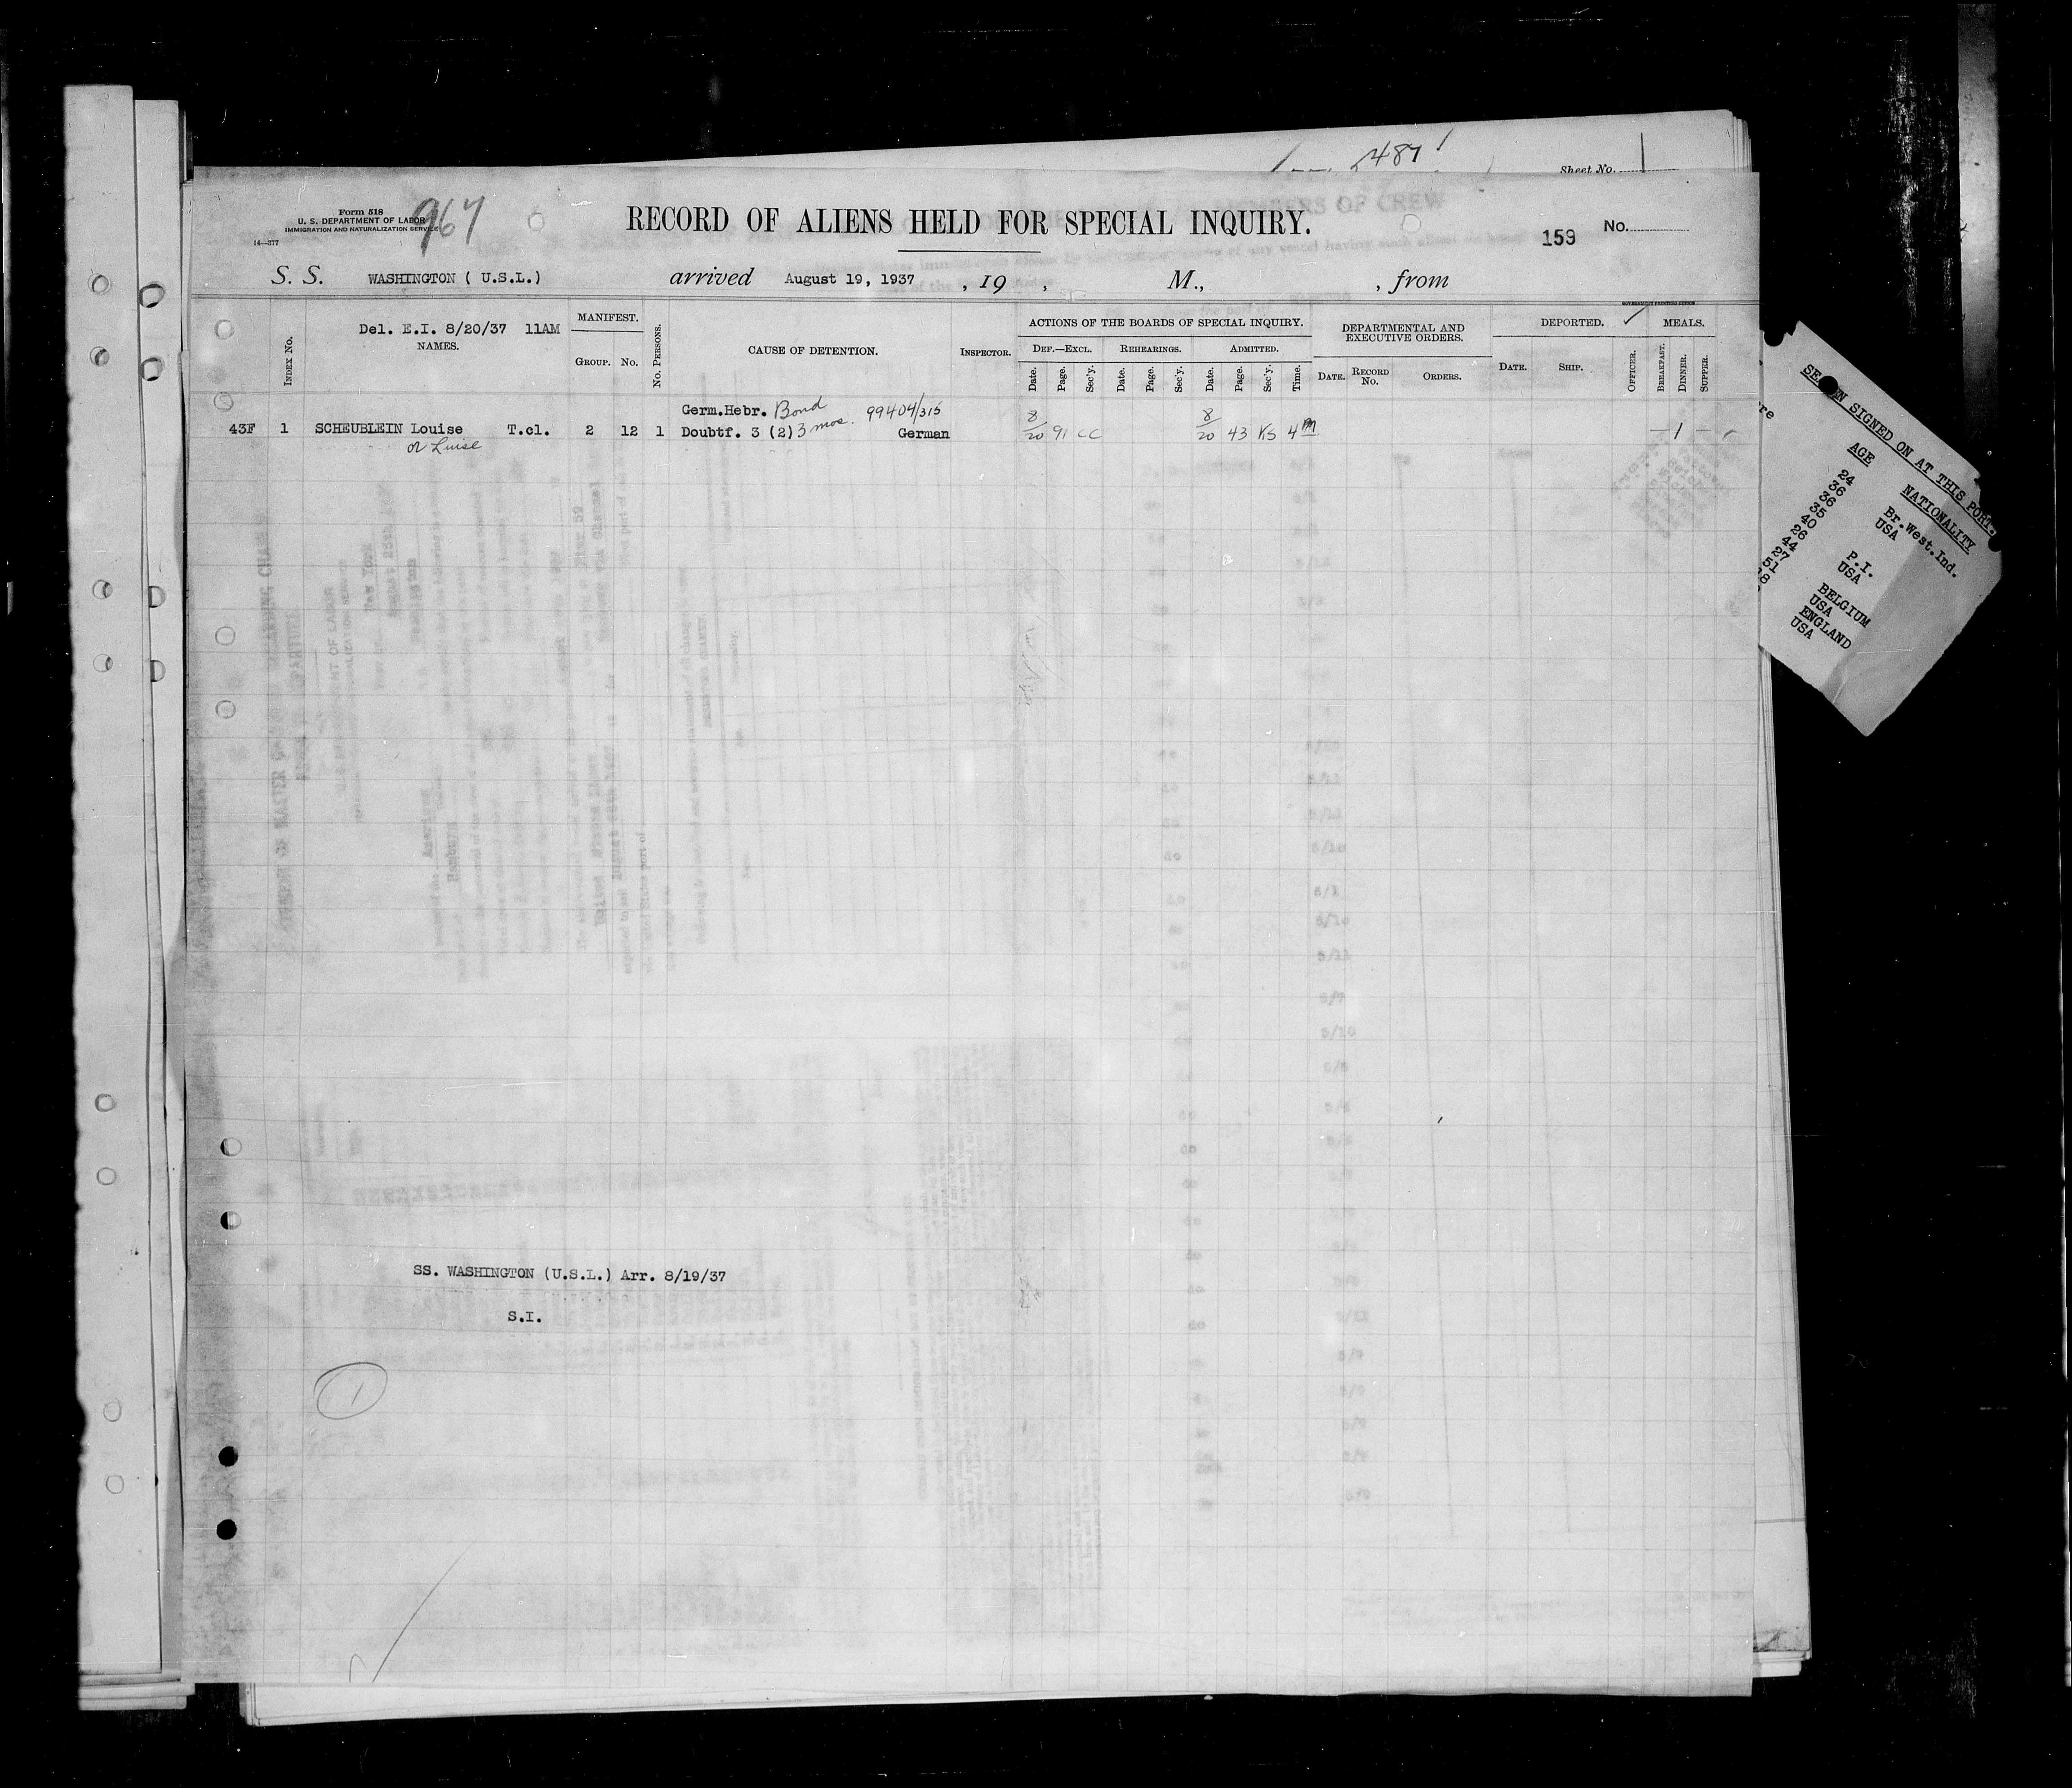 487
Sheet No. 1
Form 518
U. S. DEPARTMENT OF LABOR
IMMIGRATION AND NATURALIZATION SERVICE
14—377
967
RECORD OF ALIENS HELD FOR SPECIAL INQUIRY.
159 No.
S. S. WASHINGTON ( U.S.L.) arrived August 19, 1937 , 19 , M., , from
GOVERNMENT PRINTING OFFICE
INDEX No.
Del. E.I. 8/20/37 11AM
NAMES.
MANIFEST.
GROUP. No.
No. PERSONS.
CAUSE OF DETENTION.
INSPECTOR.
ACTIONS OF THE BOARDS OF SPECIAL INQUIRY.
DEF.—EXCL. REHEARINGS. ADMITTED.
Date. Page. Sec'y. Date. Page. Sec'y. Date. Page. Sec'y. Time.
DEPARTMENTAL AND
EXECUTIVE ORDERS.
DATE. RECORD No. ORDERS.
DEPORTED.
DATE. SHIP.
OFFICER.
MEALS.
BREAKFAST. DINNER. SUPPER.
Germ.Hebr. Bond 99404/315
43F 1 SCHEUBLEIN Louise T.cl. 2 12 1 Doubtf. 3 (2) 3 mos. German 8/20 91 CC 8/20 43 KS 4 M — 1 —
or Luise
SS. WASHINGTON (U.S.L.) Arr. 8/19/37
S.I.
1
SEAMEN SIGNED ON AT THIS PORT.
AGE NATIONALITY
24 Br.West.Ind.
36 USA
36
35 P.I.
40 USA
26
44 BELGIUM
27 USA
51 ENGLAND
18 USA